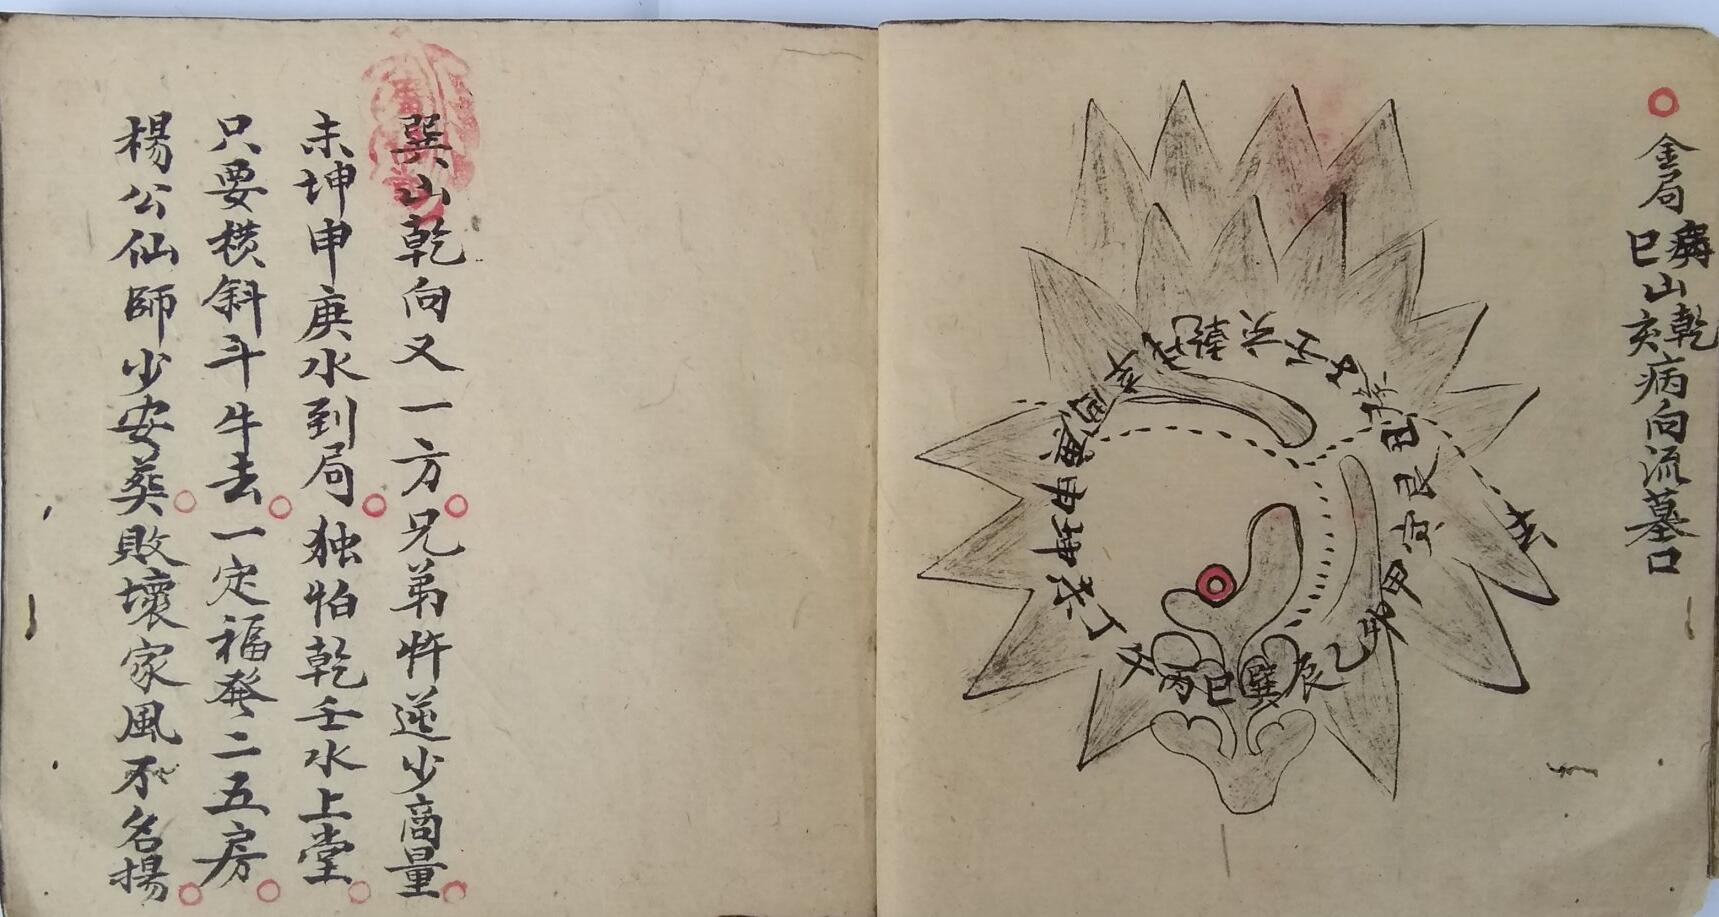 金局巽巳山乾亥病向流墓口
壬子癸丑艮寅甲卯乙辰巽巳丙午丁未坤申庚酉辛戌乾亥
去
巽山乾向又一方兄弟忤逆少商量
未坤申庚水到局独怕乾壬水上堂
只要横斜斗牛去一定福發二五房
楊公仙師少安葬敗壞家風不名揚